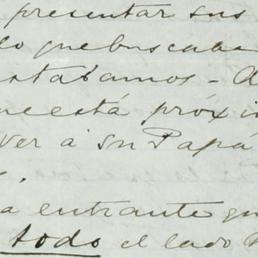 presentar sus
lo que buscaba
estabamos - A
ue está próxi
ver á su Papá
a entrante qu
todo el lado